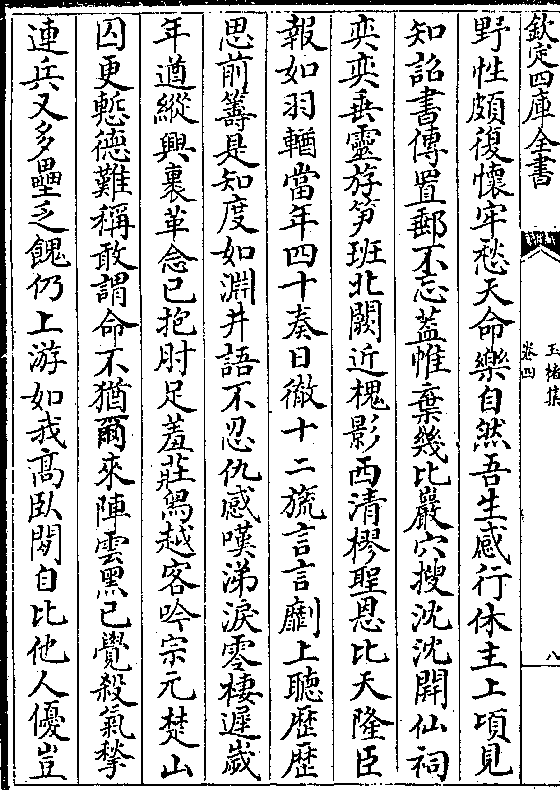 欽定四庫全書
玉楮集
卷四
八
野性頗復懷牢愁天命樂自然吾生感行休主上頃見
知詔書傳置郵不忘蓋帷棄幾比巖穴搜沈沈開仙祠
奕奕垂靈斿笋班北闕近槐影西清樛聖恩比天隆臣
報如羽輶當年四十奏日徹十二旒言言劘上聽歴歴
思前籌是知度如淵井語不忍仇感嘆涕淚零棲遲歲
年遒縱興裹革念已抱肘足羞莊舄越客吟宗元楚山
囚更慙德難稱敢謂命不猶爾來陣雲黑已覺殺氣㨄
連兵又多壘乏餽仍上游如我高臥閒自比他人優豈